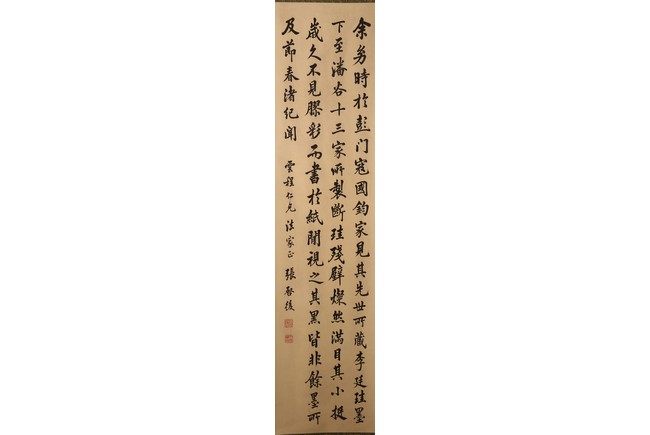 余剪時於彭门寇國鈞家見其先世所藏李廷珪墨
下至潘谷十三家所製斷珪殘璧燦然滿目其小挺
嵗久不見膠彩而書於紙間視之其黑皆非餘墨所
及節春渚纪聞
雲程仁兄法家正 張啓後